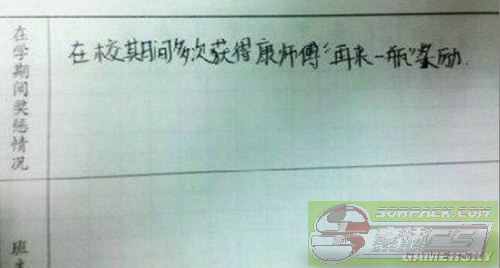 在学期间奖惩情况
在校其间多次获得康师傅“再来一瓶”奖励.
班主
SORPACK.COM
GAMERSKY